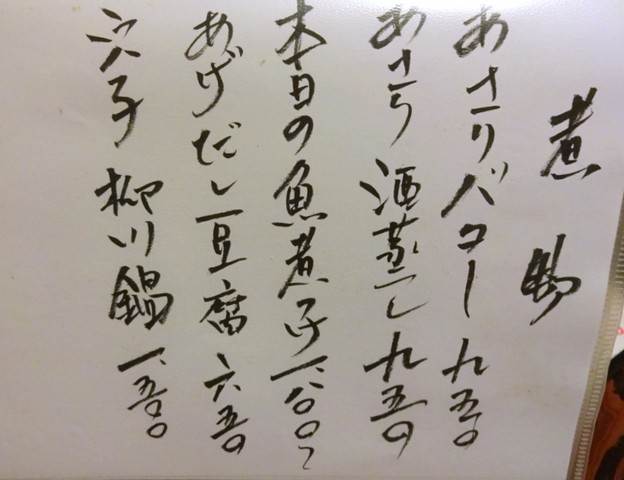 煮物
あさりバター 九五〇
あさり酒蒸し 九五〇
本日の魚煮付 一、八〇〇〜
あげだし豆腐 六五〇
穴子柳川鍋 一、五〇〇